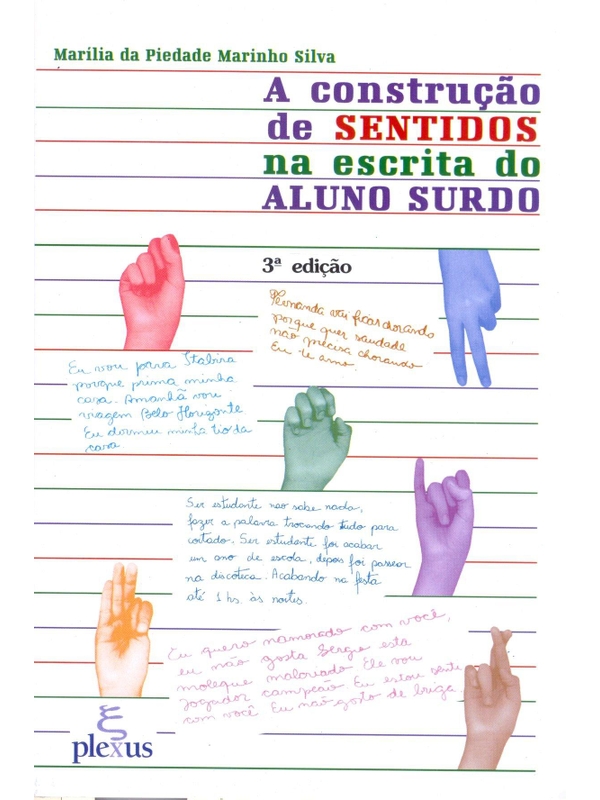 Marília da Piedade Marinho Silva
A construção
de SENTIDOS
na escrita do
ALUNO SURDO
3ª edição
Fernanda vai ficar chorando
porque quer saudade
não precisa chorando
Eu te amo.
Eu vou parra Itabira
porque prima minha
casa. Amanhã vou
viagem Belo Horizonte
Eu dormeu minha tio da
casa.
Ser estudante não sabe nada,
fazer a palavra trocando tudo para
cortado. Ser estudante foi acabar
um ano de escola, depois foi passear
na discoteca. Acabando na festa
até 1 hs. às noites.
Eu quero namorado com você,
eu não gosta Sergio esta
moleque malvriado Ele vou
jogador campeão Eu estou sente
com você Eu não gosto de briga.
plexus